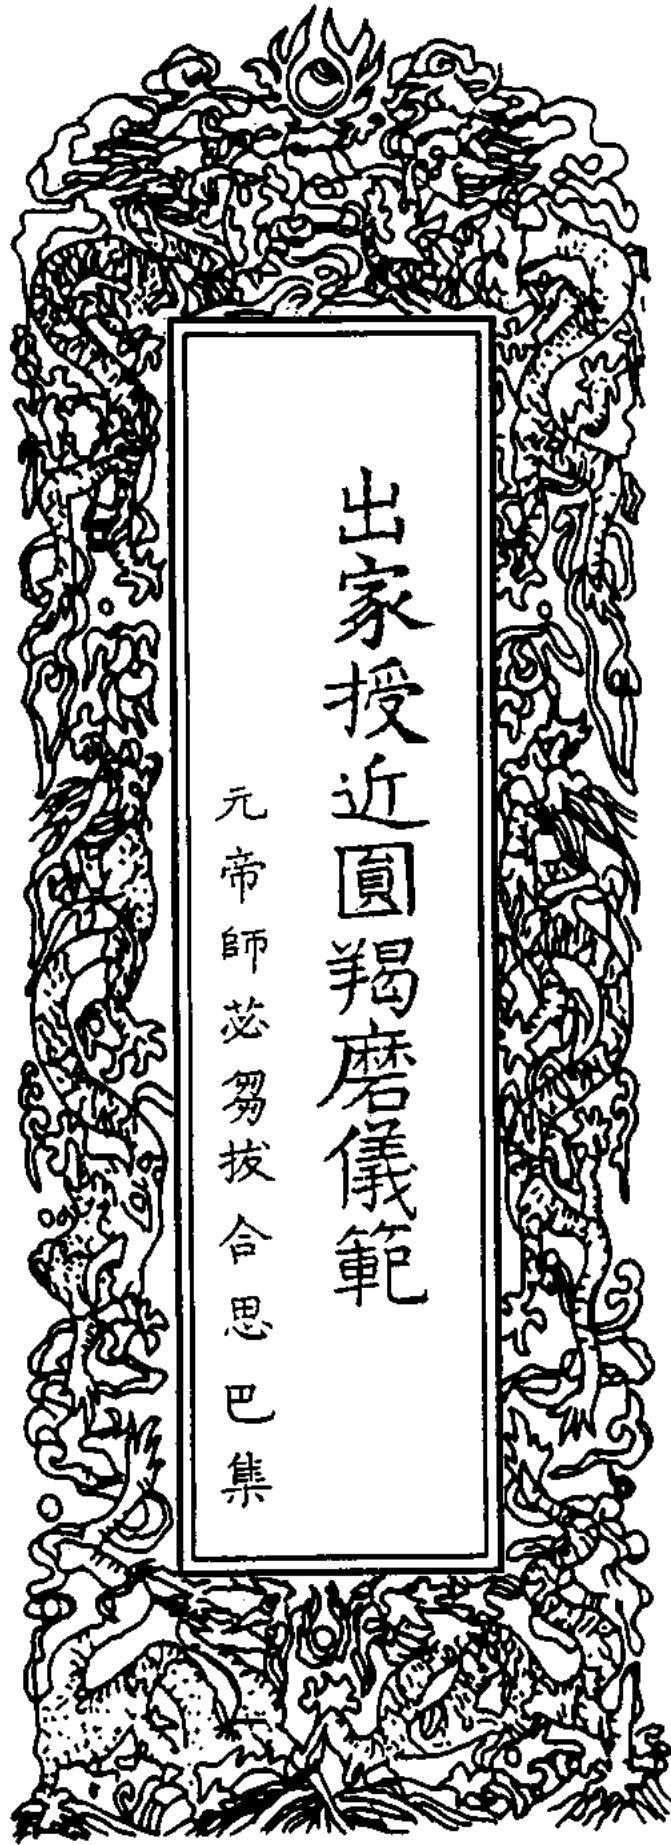 出家授近圓羯磨儀範
元帝師苾芻拔合思巴集